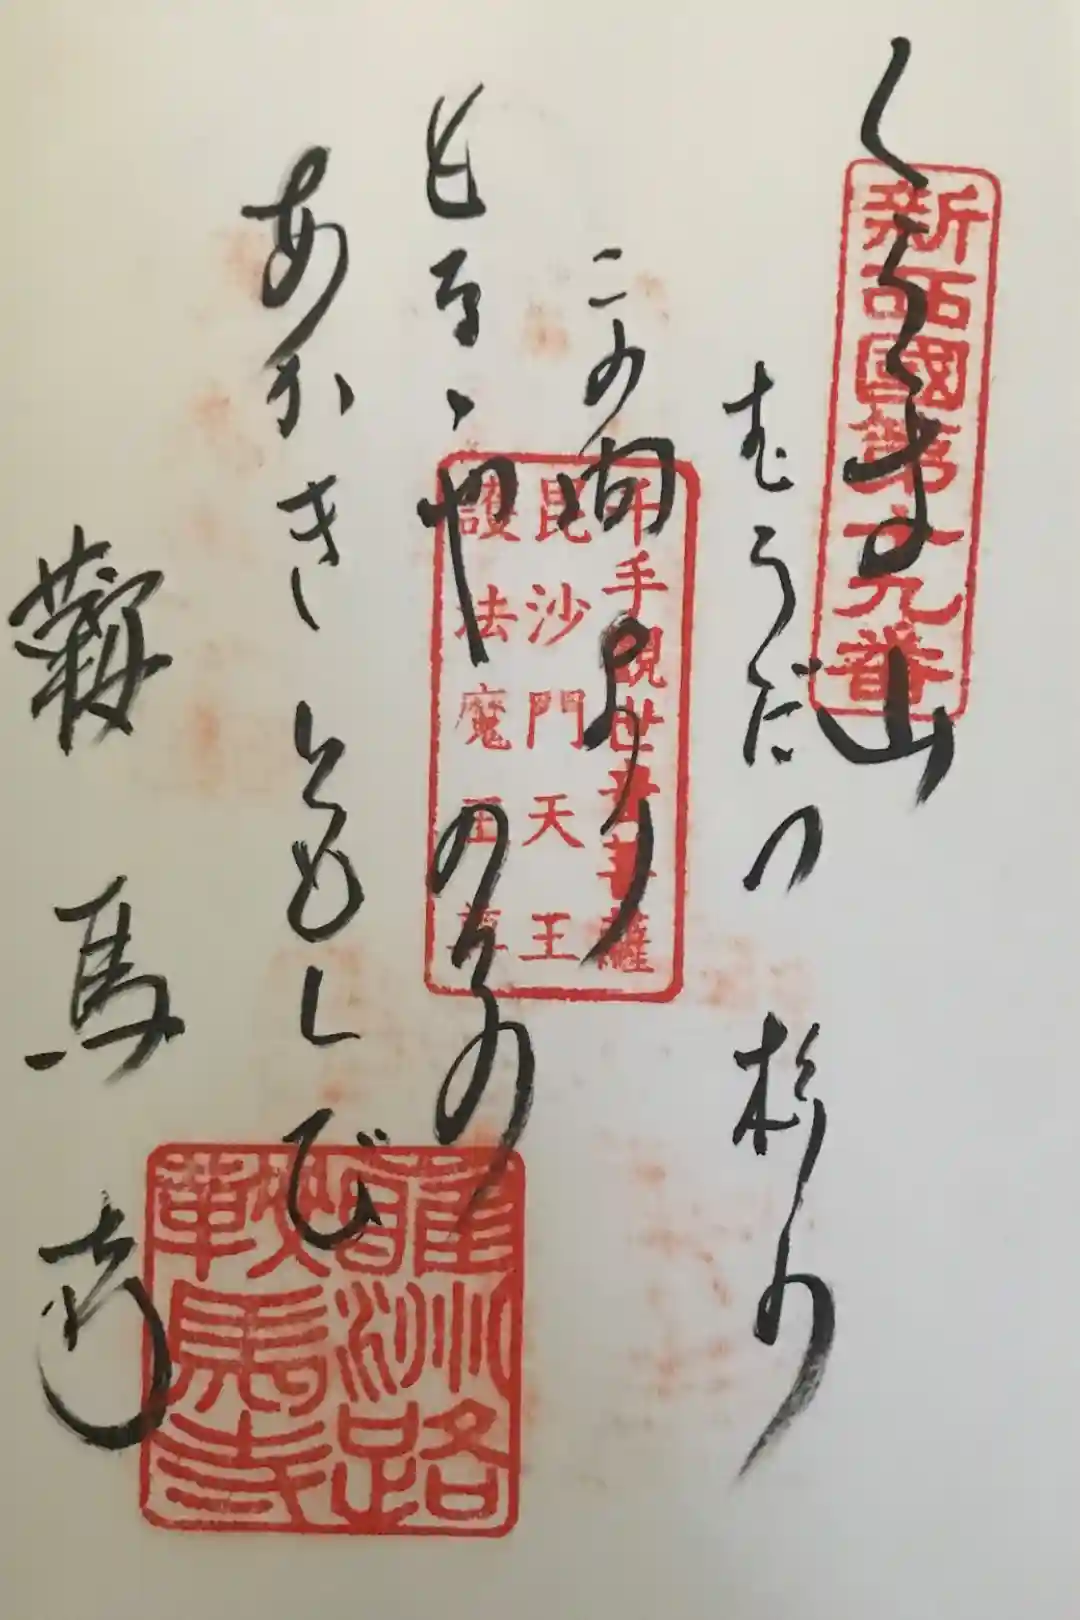 新西國第十九番
くらま山
むらだつ 杉の
この間より
もるゝや のりの
あかき ともしび
鞍馬寺
千手觀世音菩薩
毘沙門天王
護法魔王尊
洲路
鞍馬寺